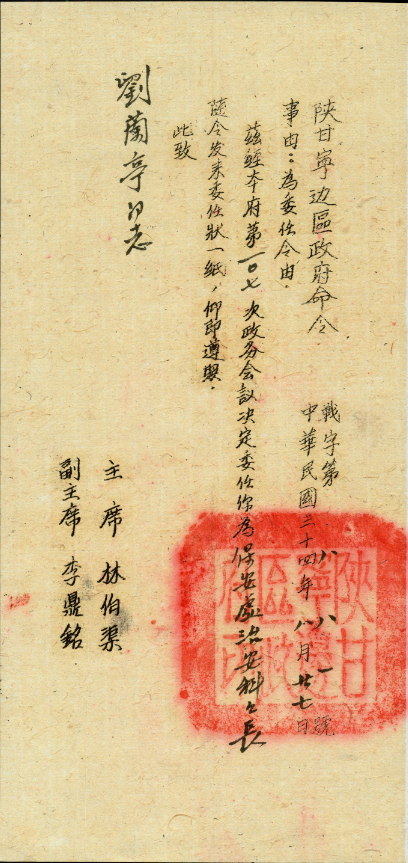 陕甘寧边區政府命令
戰字第八八一號
事由：為委任令由．
中華民國三十四年八月廿七日
茲經本府第一〇七次政务会议决定委任你為保安處治安科々長
隨令发来委任狀一紙，仰即遵照．
此致
劉蘭亭同志
主席 林伯渠
副主席 李鼎銘
陝甘
寧邊
區政
府印